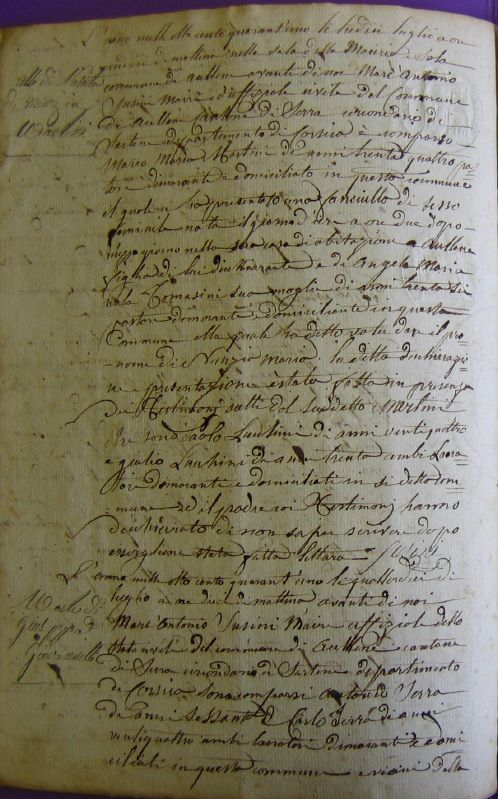 L'anno mille otto cento quarant'uno li tredici luglio a ore
undici di mattino nella sala della Maeria sola
comune di aullene avanti di noi Marc Antonio
Susini Maire d'affiziale civile del commune
di Aullene cantone di Serra circondario di
Sartene dipartimento di Corsica è comparso
Marco Maria Martini di anni trenta quattro pas
tore dimorante e domiciliato in questo commune
il quale ci ha presentato una fanciullo di sesso
feminile nata il giorno di iere a ore due dopo
mezzo giorno nella sua casa di abitazione a aullene
figlia di lui dichiarante e di Angela Maria
nata Tomasini sua moglie di anni trenta sei
pastori dimorante, domiciliente in questa
Commune alla quale ha detto volu dare il pro
nome di Nunzia maria. la detta dichiarazio
ne e presentazione è stata fatta in presenza
dei Testimonj del suddetto Martini
che sono Paolo Lucchini di anni venti quattro
e giulio Lucchini di anni trenta ambi Lavora
tori domorante e domiciliati in detto com
mune ed il padre coi Testimonj hanno
dichierrato di non saper scrivere dopo
essergliene stata fatta lettura Susini
L'anno mille otto cento quarant'uno li quattordici di
luglio a ore dieci di mattino avanti di noi
Marc Antonio Susini Maire affiziale dello
stato civile del commune di Aullene cantone
di Serra circondario di Sartene dipartimento
di Corsica sono comparsi Antonio Serra
di anni sessanta E Carlo Serra di anni
ventiquattro ambi lavoratori dimoranti e domi
ciliati in questa commune e vicini della
atto di
di nunzia
Morte di
Giuseppa
Giovannelli